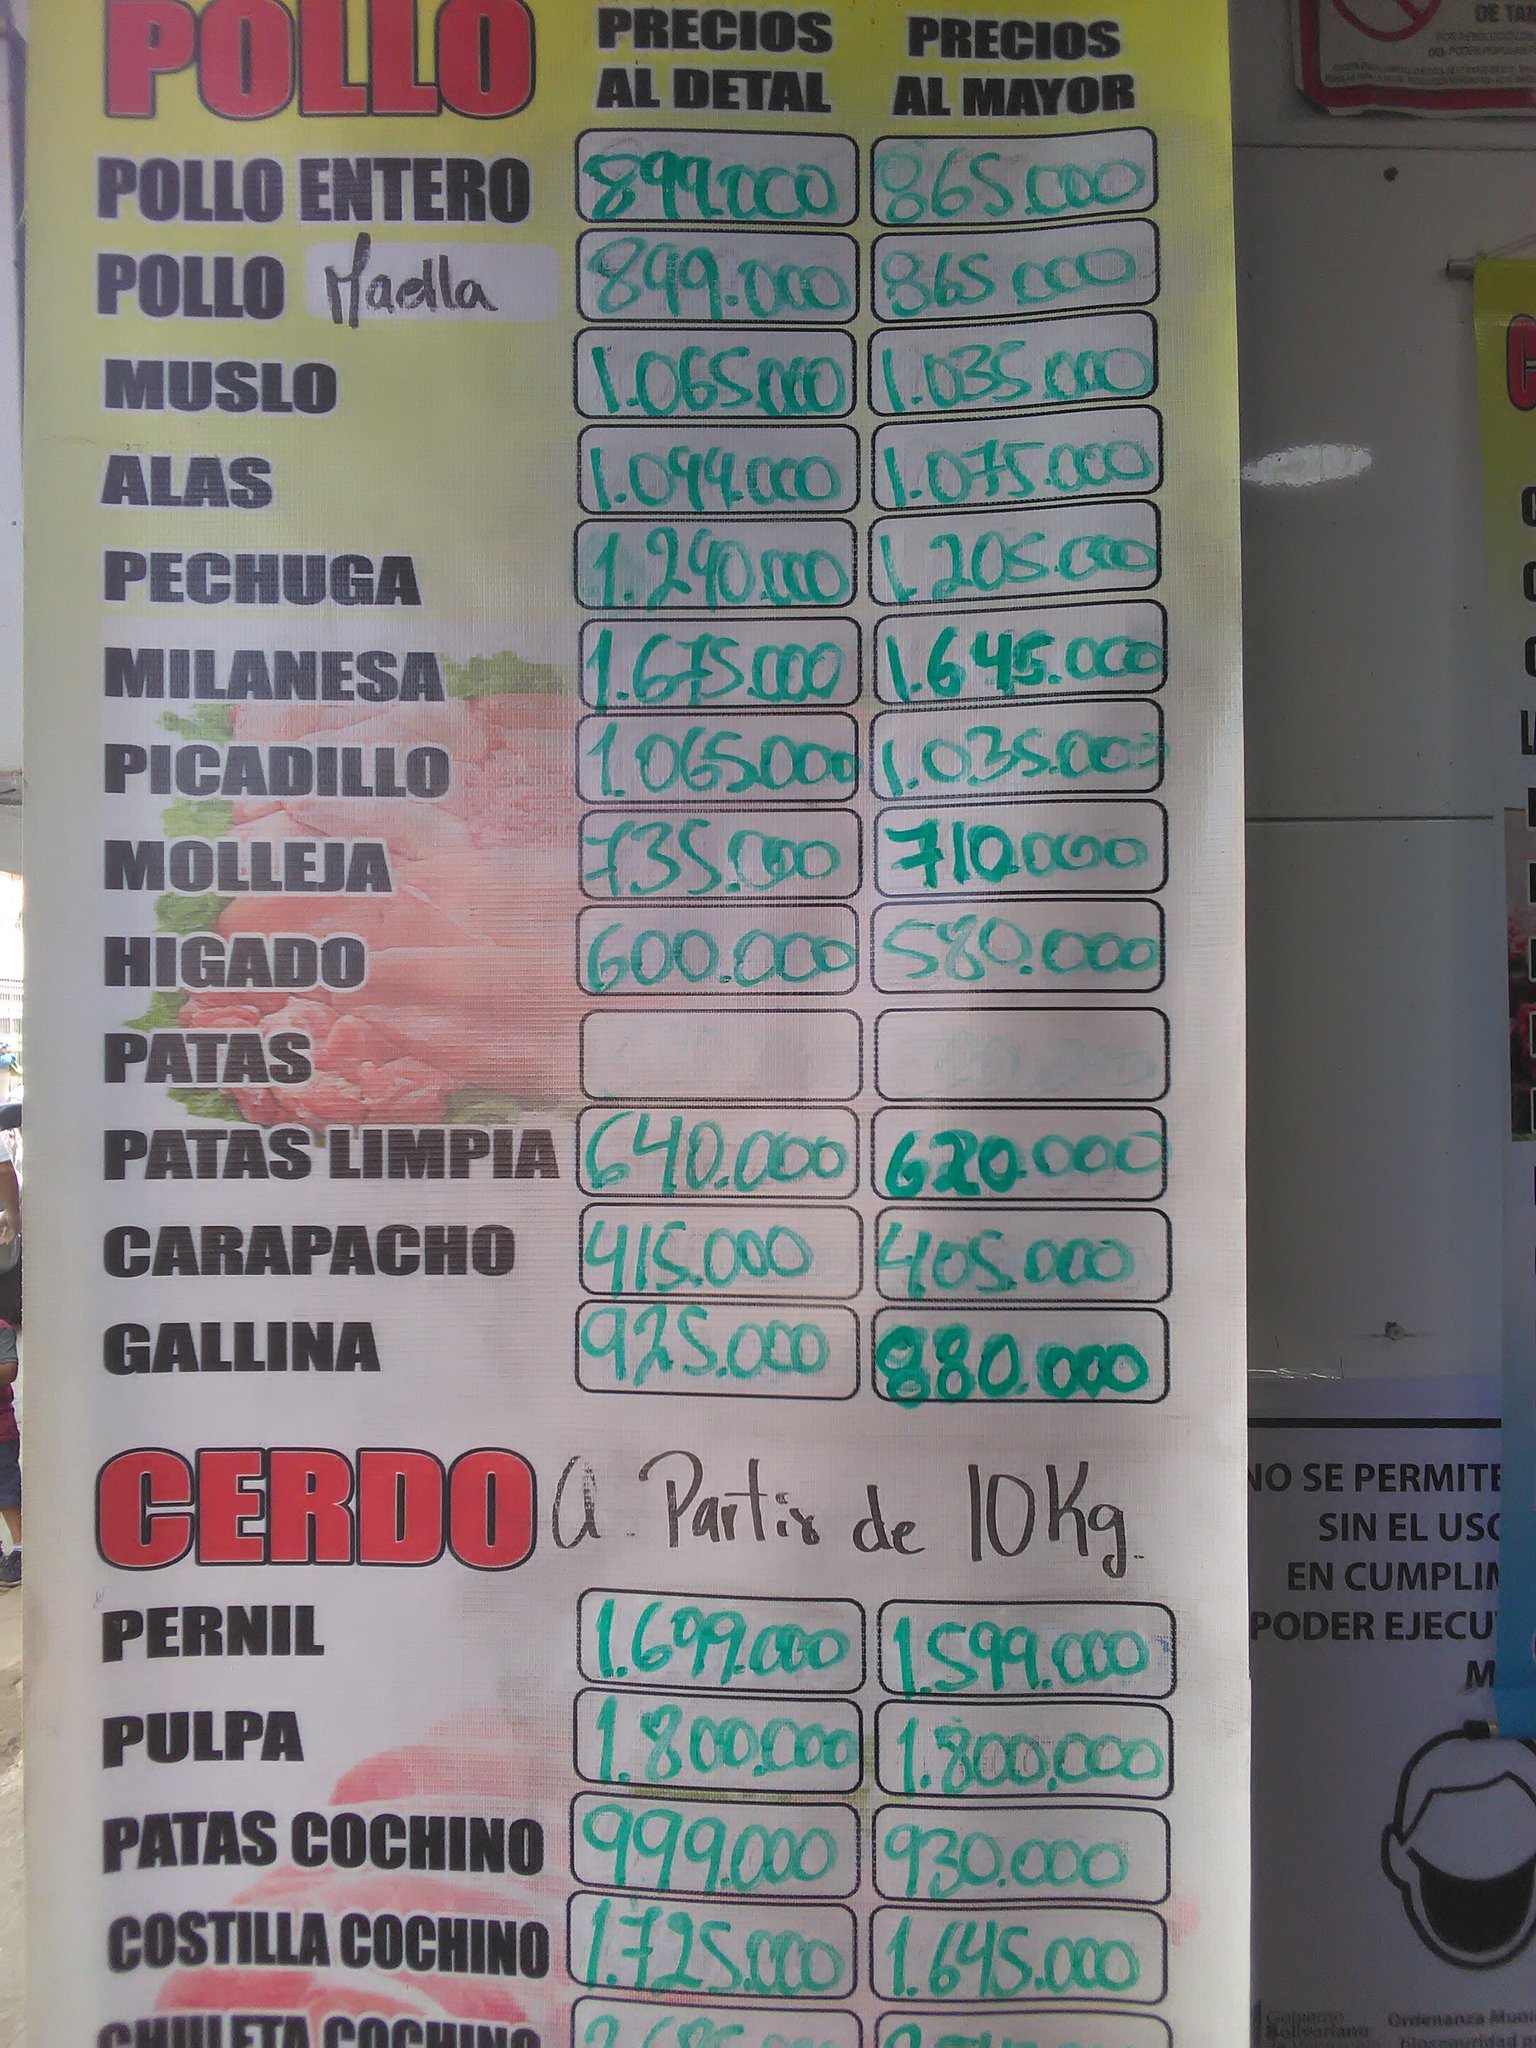 POLLO PRECIOS AL DETAL PRECIOS AL MAYOR
POLLO ENTERO 899.000 865.000
POLLO Maella 899.000 865.000
MUSLO 1.065.000 1.035.000
ALAS 1.094.000 1.075.000
PECHUGA 1.240.000 1.205.000
MILANESA 1.675.000 1.645.000
PICADILLO 1.065.000 1.035.000
MOLLEJA 735.000 710.000
HIGADO 600.000 580.000
PATAS
PATAS LIMPIA 640.000 620.000
CARAPACHO 415.000 405.000
GALLINA 925.000 880.000
CERDO a Partir de 10Kg.
PERNIL 1.699.000 1.599.000
PULPA 1.800.000 1.800.000
PATAS COCHINO 999.000 930.000
COSTILLA COCHINO 1.725.000 1.645.000
CHULETA COCHINO
DE TAB
POR RESOLUCION DE
DEL PODER POPULAR
NO SE PERMITE
SIN EL USO
EN CUMPLIM
PODER EJECUT
M
Gobierno
Bolivariano
Ordenanza Muni